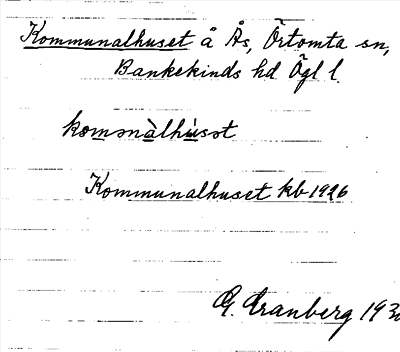 Kommunalhuset å Ås, Örtomta sn,
Bankekinds hd Ögl l.
komɯnàlhúsət
Kommunalhuset kb 1926
G. Cranberg 193